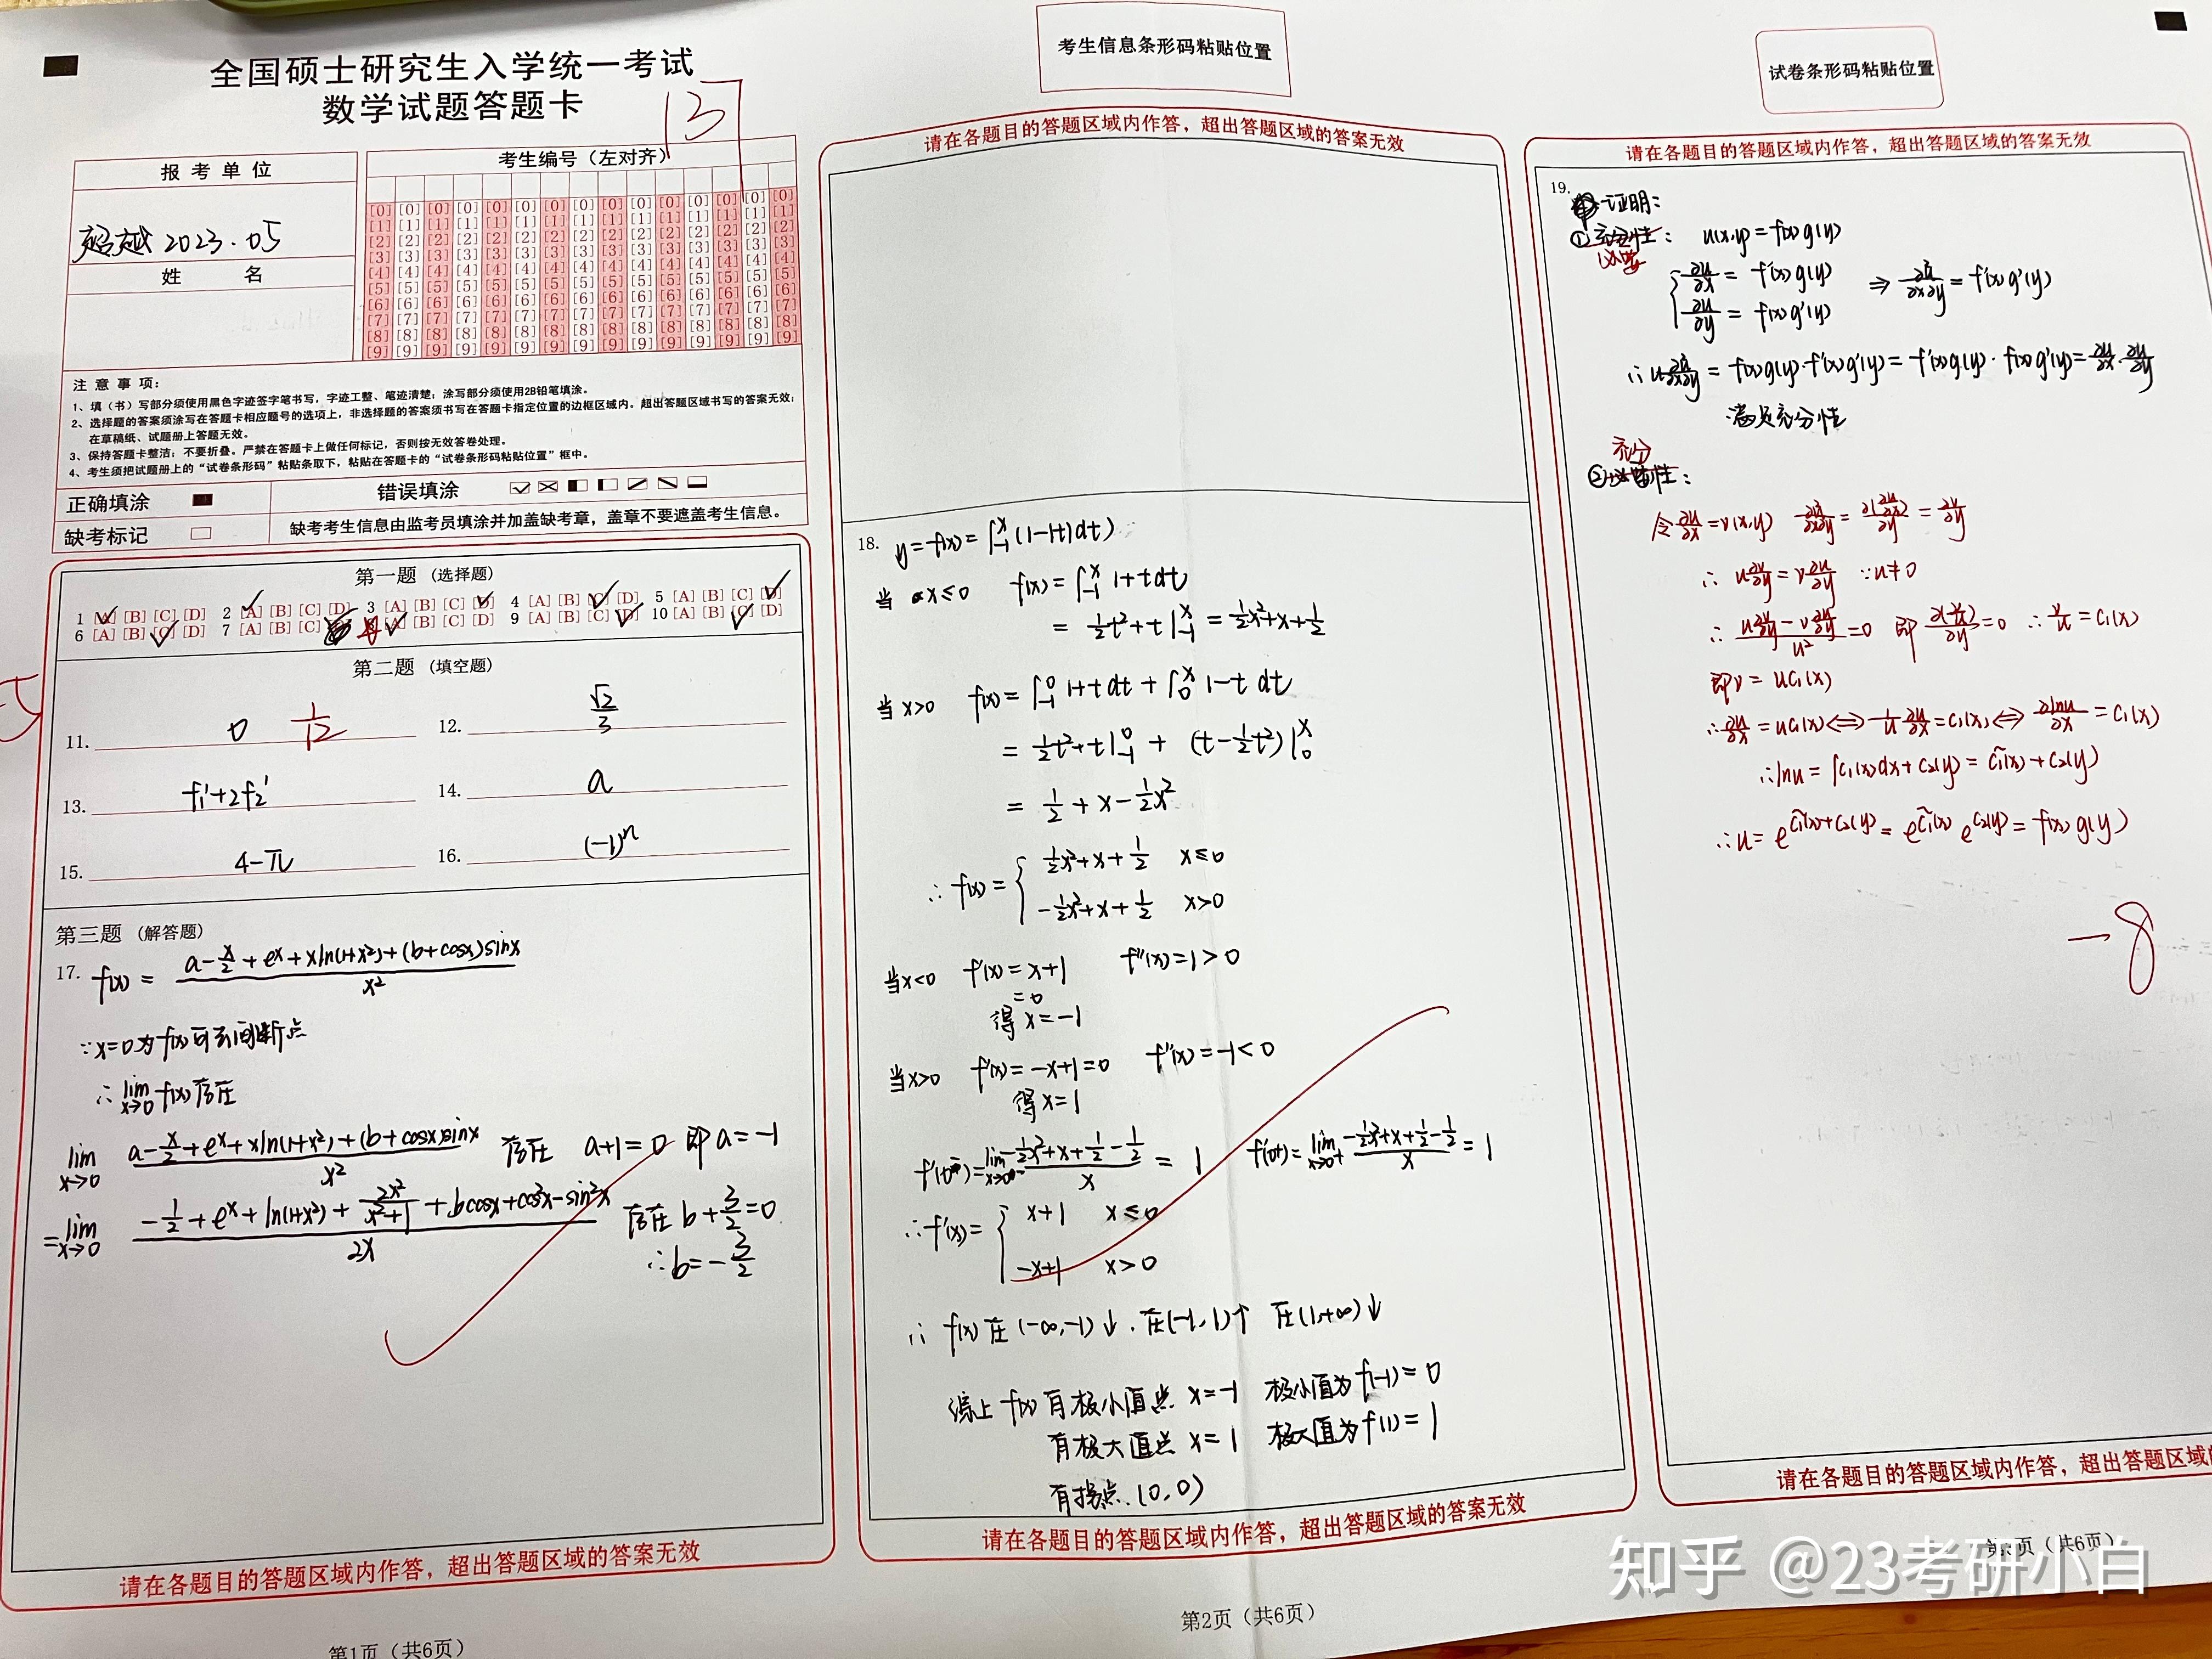 全国硕士研究生入学统一考试
数学试题答题卡
137
报 考 单 位
超越 2023.05
姓 名
考生编号（左对齐）
[0] [0] [0] [0] [0] [0] [0] [0] [0] [0] [0] [0] [0] [0] [0]
[1] [1] [1] [1] [1] [1] [1] [1] [1] [1] [1] [1] [1] [1] [1]
[2] [2] [2] [2] [2] [2] [2] [2] [2] [2] [2] [2] [2] [2] [2]
[3] [3] [3] [3] [3] [3] [3] [3] [3] [3] [3] [3] [3] [3] [3]
[4] [4] [4] [4] [4] [4] [4] [4] [4] [4] [4] [4] [4] [4] [4]
[5] [5] [5] [5] [5] [5] [5] [5] [5] [5] [5] [5] [5] [5] [5]
[6] [6] [6] [6] [6] [6] [6] [6] [6] [6] [6] [6] [6] [6] [6]
[7] [7] [7] [7] [7] [7] [7] [7] [7] [7] [7] [7] [7] [7] [7]
[8] [8] [8] [8] [8] [8] [8] [8] [8] [8] [8] [8] [8] [8] [8]
[9] [9] [9] [9] [9] [9] [9] [9] [9] [9] [9] [9] [9] [9] [9]
注 意 事 项：
1、填（书）写部分须使用黑色字迹签字笔书写，字迹工整、笔迹清楚；涂写部分须使用2B铅笔填涂。
2、选择题的答案须涂写在答题卡相应题号的选项上，非选择题的答案须书写在答题卡指定位置的边框区域内。超出答题区域书写的答案无效；
在草稿纸、试题册上答题无效。
3、保持答题卡整洁；不要折叠。严禁在答题卡上做任何标记，否则按无效答卷处理。
4、考生须把试题册上的“试卷条形码”粘贴条取下，粘贴在答题卡的“试卷条形码粘贴位置”框中。
正确填涂
错误填涂
缺考标记
缺考考生信息由监考员填涂并加盖缺考章，盖章不要遮盖考生信息。
第一题 （选择题）
1 [A] [B] [C] [D] 2 [A] [B] [C] [D] 3 [A] [B] [C] [D] 4 [A] [B] [C] [D] 5 [A] [B] [C] [D]
6 [A] [B] [C] [D] 7 [A] [B] [C] [A] [B] [C] [D] 9 [A] [B] [C] [D] 10 [A] [B] [C] [D]
第二题 （填空题）
11. 0 1/12
12. √2/3
13. f₁'+2f₂'
14. a
15. 4-π
16. (-1)ⁿ
第三题 （解答题）
17. f(x) = (a-x/2+eˣ+xln(1+x²)+(b+cosx)sinx)/x²
∵x=0为f(x)可去间断点
∴ lim x→0 f(x)存在
lim x→0 (a-x/2+eˣ+xln(1+x²)+(b+cosx)sinx)/x² 存在 a+1=0 即a=-1
=lim x→0 (-1/2+eˣ+ln(1+x²)+2x²/(x²+1)+bcosx+cos²x-sin²x)/2x 存在 b+3/2=0
∴b=-3/2
请在各题目的答题区域内作答，超出答题区域的答案无效
第1页（共6页）
考生信息条形码粘贴位置
请在各题目的答题区域内作答，超出答题区域的答案无效
18. y=f(x)=∫₋₁ˣ(1-|t|dt)
当 x≤0 f(x)=∫₋₁ˣ 1+t dt
= 1/2t²+t|₋₁ˣ = 1/2x²+x+1/2
当x>0 f(x)=∫₋₁⁰ 1+t dt + ∫₀ˣ 1-t dt
= 1/2t²+t|₋₁⁰ + (t-1/2t²)|₀ˣ
= 1/2+x-1/2x²
∴ f(x)= { 1/2x²+x+1/2 x≤0
-1/2x²+x+1/2 x>0
当x<0 f'(x)=x+1 f''(x)=1>0
=0
得 x=-1
当x>0 f'(x)=-x+1=0 f''(x)=-1<0
得 x=1
f'(0⁻)=lim x→0⁻ (-1/2x²+x+1/2-1/2)/x = 1 f'(0+)=lim x→0+ (-1/2x²+x+1/2-1/2)/x = 1
∴f'(x)= { x+1 x≤0
-x+1 x>0
∴ f(x)在(-∞,-1)↓.在(-1,1)↑ 在(1,+∞)↓
综上 f(x)有极小值点 x=-1 极小值为f(-1)=0
有极大值点 x=1 极大值为f(1)=1
有拐点.(0,0)
请在各题目的答题区域内作答，超出答题区域的答案无效
第2页（共6页）
试卷条形码粘贴位置
请在各题目的答题区域内作答，超出答题区域的答案无效
19. 证明：
①充分性： u(x,y)=f(x)g(y)
必要
{ ∂u/∂x = f'(x)g(y) ⇒ ∂²u/∂x∂y = f'(x)g'(y)
∂u/∂y = f(x)g'(y)
∴u∂²u/∂x∂y = f(x)g(y)·f'(x)g'(y)=f'(x)g(y)·f(x)g'(y)=∂u/∂x·∂u/∂y
∴满足充分性
充分
②必要性：
令∂u/∂x=v(x,y) ∂²u/∂x∂y = ∂(∂u/∂x)/∂y = ∂v/∂y
∴ u∂v/∂y=v∂u/∂y ∵u≠0
∴ (u∂v/∂y-v∂u/∂y)/u²=0 即 ∂(v/u)/∂y=0 ∴v/u=c₁(x)
即v=uc₁(x)
∴∂u/∂x=uc₁(x)⇔1/u ∂u/∂x=c₁(x)⇔∂lnu/∂x=c₁(x)
∴lnu=∫c₁(x)dx+c₂(y)=c̃₁(x)+c₂(y)
∴u=e^(c̃₁(x)+c₂(y))=e^c̃₁(x) e^c₂(y)=f(x)g(y)
-8
请在各题目的答题区域内作答，超出答题区域
页（共6页）
知乎 @23考研小白